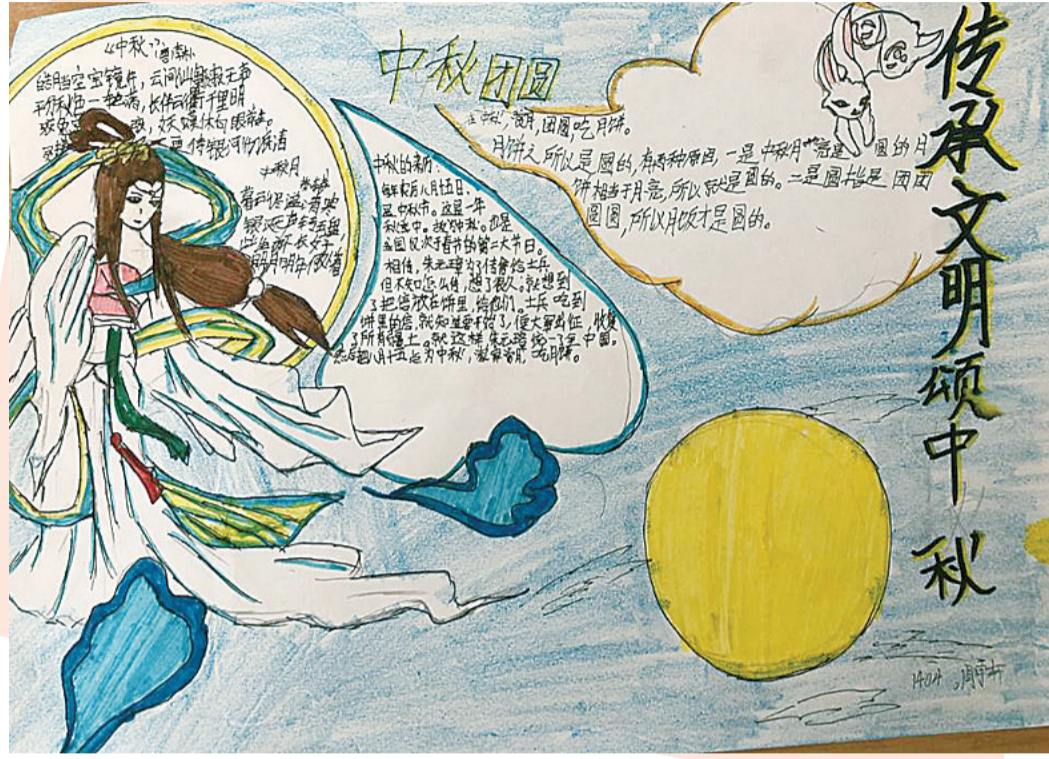 《中秋》
皓魄当空宝镜升，云间仙籁寂无声
平分秋色一轮满，长伴云衢千里明
狡兔空，妖蟆休向眼前
中秋月
暮云收尽溢清寒
银汉无声转玉盘
此生此夜不长好
明月明年何处看
中秋团圆
中秋的来历：
每年农历八月十五日、
是中秋节。这是一年
秋季中。故称中秋。也是
我国仅次于春节的第二大节日。
相传，朱元璋为了传信给士兵，
但不知怎么传，想了很久。就想到
了把信放在饼里给他们。士兵吃到
饼里的信，就知道要开始了，便大军出征，收复
了所有疆土。就这样朱元璋统一了全中国。
然后把八月十五定为中秋，家家赏月，吃月饼。
中秋，赏月，团圆吃月饼。
月饼之所以是圆的，有两种原因，一是中秋月亮是圆的月
饼相当于月亮，所以就是圆的。二是圆指是团团
圆圆，所以月饭才是圆的。
传承文明颂中秋
1404